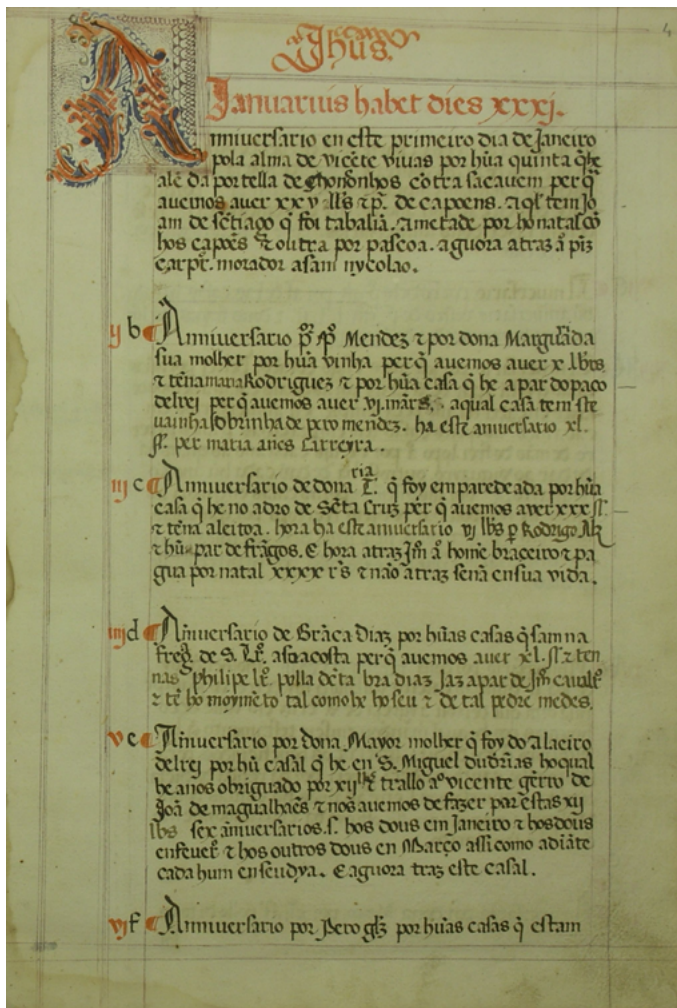 4
Jhus.
Januarius habet dies xxxj.
Anniuersario en este primeiro dia de Janeiro
pola alma de viçẽte viuas por hũa quinta q̃ he
alẽ da portella de Chondnhos cõtra sacauem per q̃
auemos auer xxv lbs de capoens. a q̃l tem Jo
am de sẽtiago q̃ foi tabaliã. a metade por ho natal cõ
hos capoẽs ⁊ outra por pascoa. aguora atraz
carpr̃. morador a sam nycolao.
ij b Anniuersario Mendez ⁊ por dona Marguarida
sua molher por hũa vinha per q̃ auemos auer x. lbrs
⁊ tẽna maria Rodriguez ⁊ por hũa casa q̃ he a par do paço
delrei per q̃ auemos auer vj. a qual casa tem ste
uainha sobrinha de pero mendez. ha este aniuersario xl.
per maria añes carreyra.
iij c Anniuersario de dona ria q̃ foy emparedeada por hũa
casa q̃ he no adro de Sẽta Cruz per q̃ auemos auer xxx
⁊ tẽna aleitoa. hora ha este aniuersario vj lbs Rodrigo
⁊ hũ par de frãgos. E hora atraz Jm̃ home braceiro ⁊ pa
gua por natal xxxx rs ⁊ não atraz senã en sua vida.
iiij d Añiuersario de Grãca Diaz por hũas casas q̃ sam na
freg. de S. per q̃ auemos auer xl. ⁊ ten
nas philipe polla bra diaz Jaz a par de Jm̃
⁊ tẽ ho moymẽto tal como he ho seu ⁊ de tal pedre medes.
v e Añiuersario por dona Mayor molher q̃ foy do
delrei por hũ casal q̃ he en S. Miguel ho qual
he a nos obriguado por xij vicente de
Joã de magualhaẽs ⁊ nos auemos de fazer par estas xij
lbs sex añiuersarios. s. hos dous em Janeiro ⁊ hos doũs
en feuer̃ ⁊ hos outros dous en Março assi como adiãte
cada hum en seu dya. E aguora traz este casal.
vj f Anniuersario por Pero glz por hũas casas q̃ estam